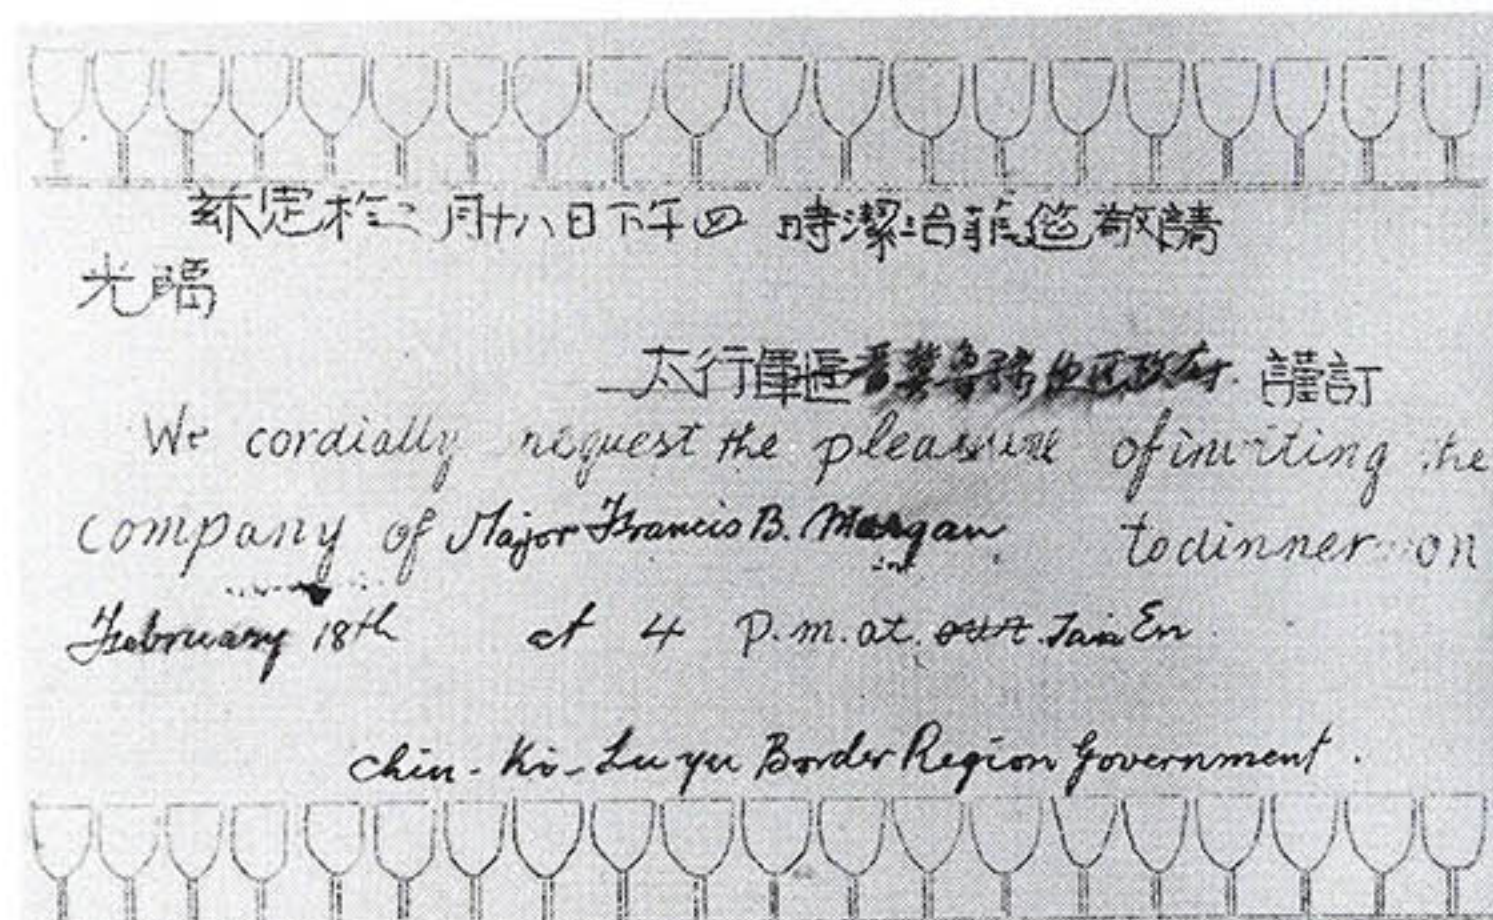 茲定於二月十八日下午四 時潔治菲筵敬請
光臨
太行軍區晋冀魯豫边区政府 謹訂
We cordially request the pleasure of inviting the
company of Major Francis B. Morgan to dinner on
February 18th at 4 P.m. at our Tain En
Chin-Ki-Lu yu Border Region Government.